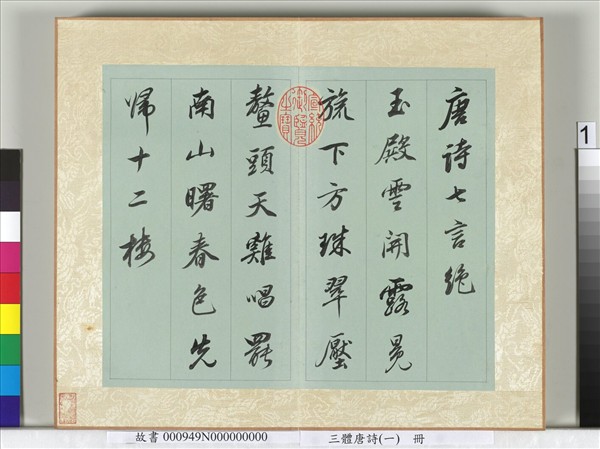 唐詩七言絕
玉殿雲開露冕
旒下方珠翠壓
鼇頭天雞唱罷
南山曙春色先
歸十二樓
宣統御覽之寶
故書 000949N000000000
三體唐詩(一) 冊
1